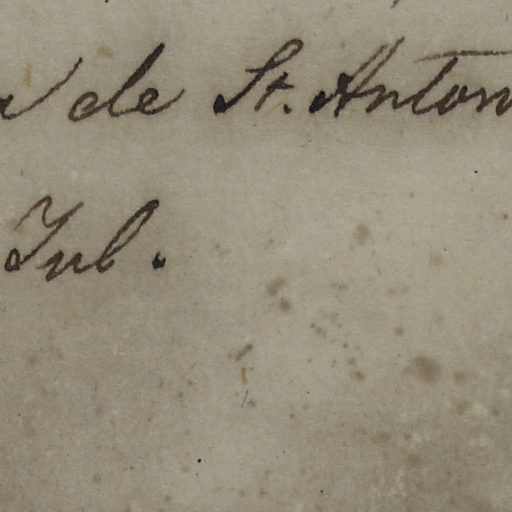 de St. Anton
Jul.